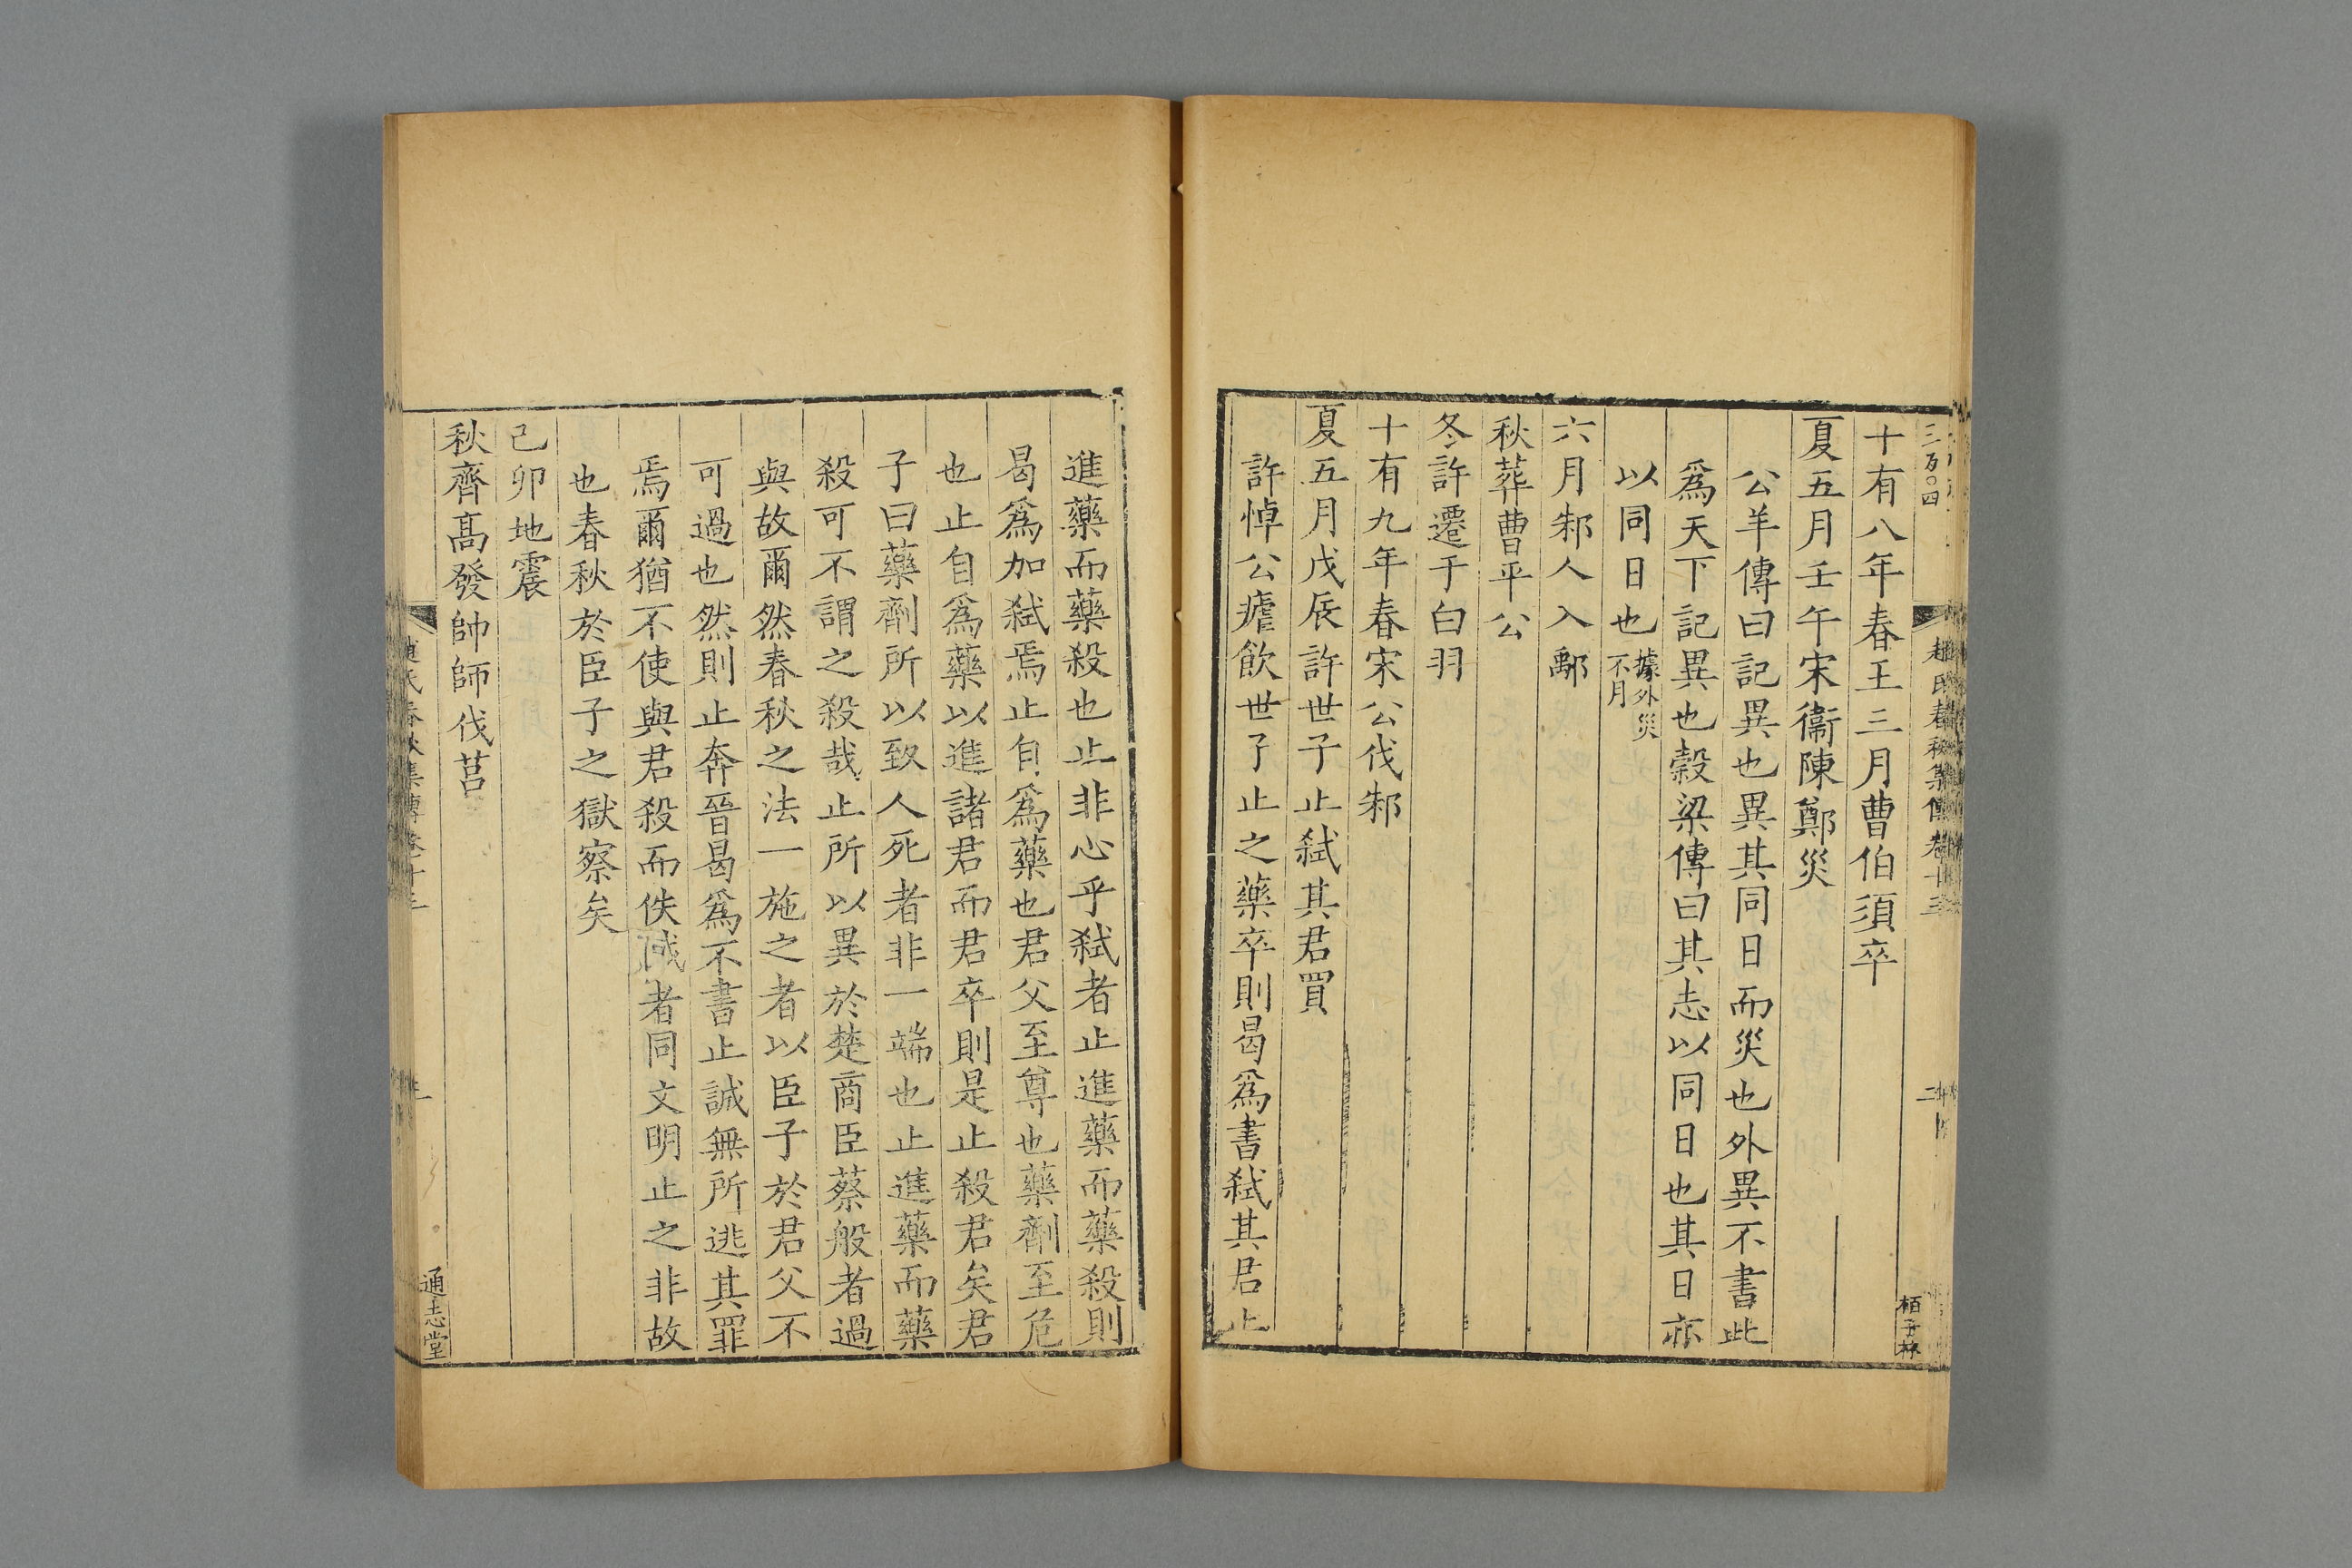 三百〇四
趙氏春秋集傳卷十三
十有八年春王三月曹伯須卒
夏五月壬午宋衞陳鄭災
公羊傳曰記異也異其同日而災也外異不書此
爲天下記異也穀梁傳曰其志以同日也其日亦
以同日也據外災不月
六月邾人入鄅
秋葬曹平公
冬許遷于白羽
十有九年春宋公伐邾
夏五月戊辰許世子止弑其君買
許悼公瘧飲世子止之藥卒則曷爲書弑其君止
進藥而藥殺也止非心乎弑者止進藥而藥殺則
曷爲加弑焉止自爲藥也君父至尊也藥劑至危
也止自爲藥以進諸君而君卒則是止殺君矣君
子曰藥劑所以致人死者非一端也止進藥而藥
殺可不謂之殺哉止所以異於楚商臣蔡般者過
與故爾然春秋之法一施之者以臣子於君父不
可過也然則止奔晉曷爲不書止誠無所逃其罪
焉爾猶不使與君殺而佚賊者同文明止之非故
也春秋於臣子之獄察矣
己卯地震
秋齊高發帥師伐莒
通志堂